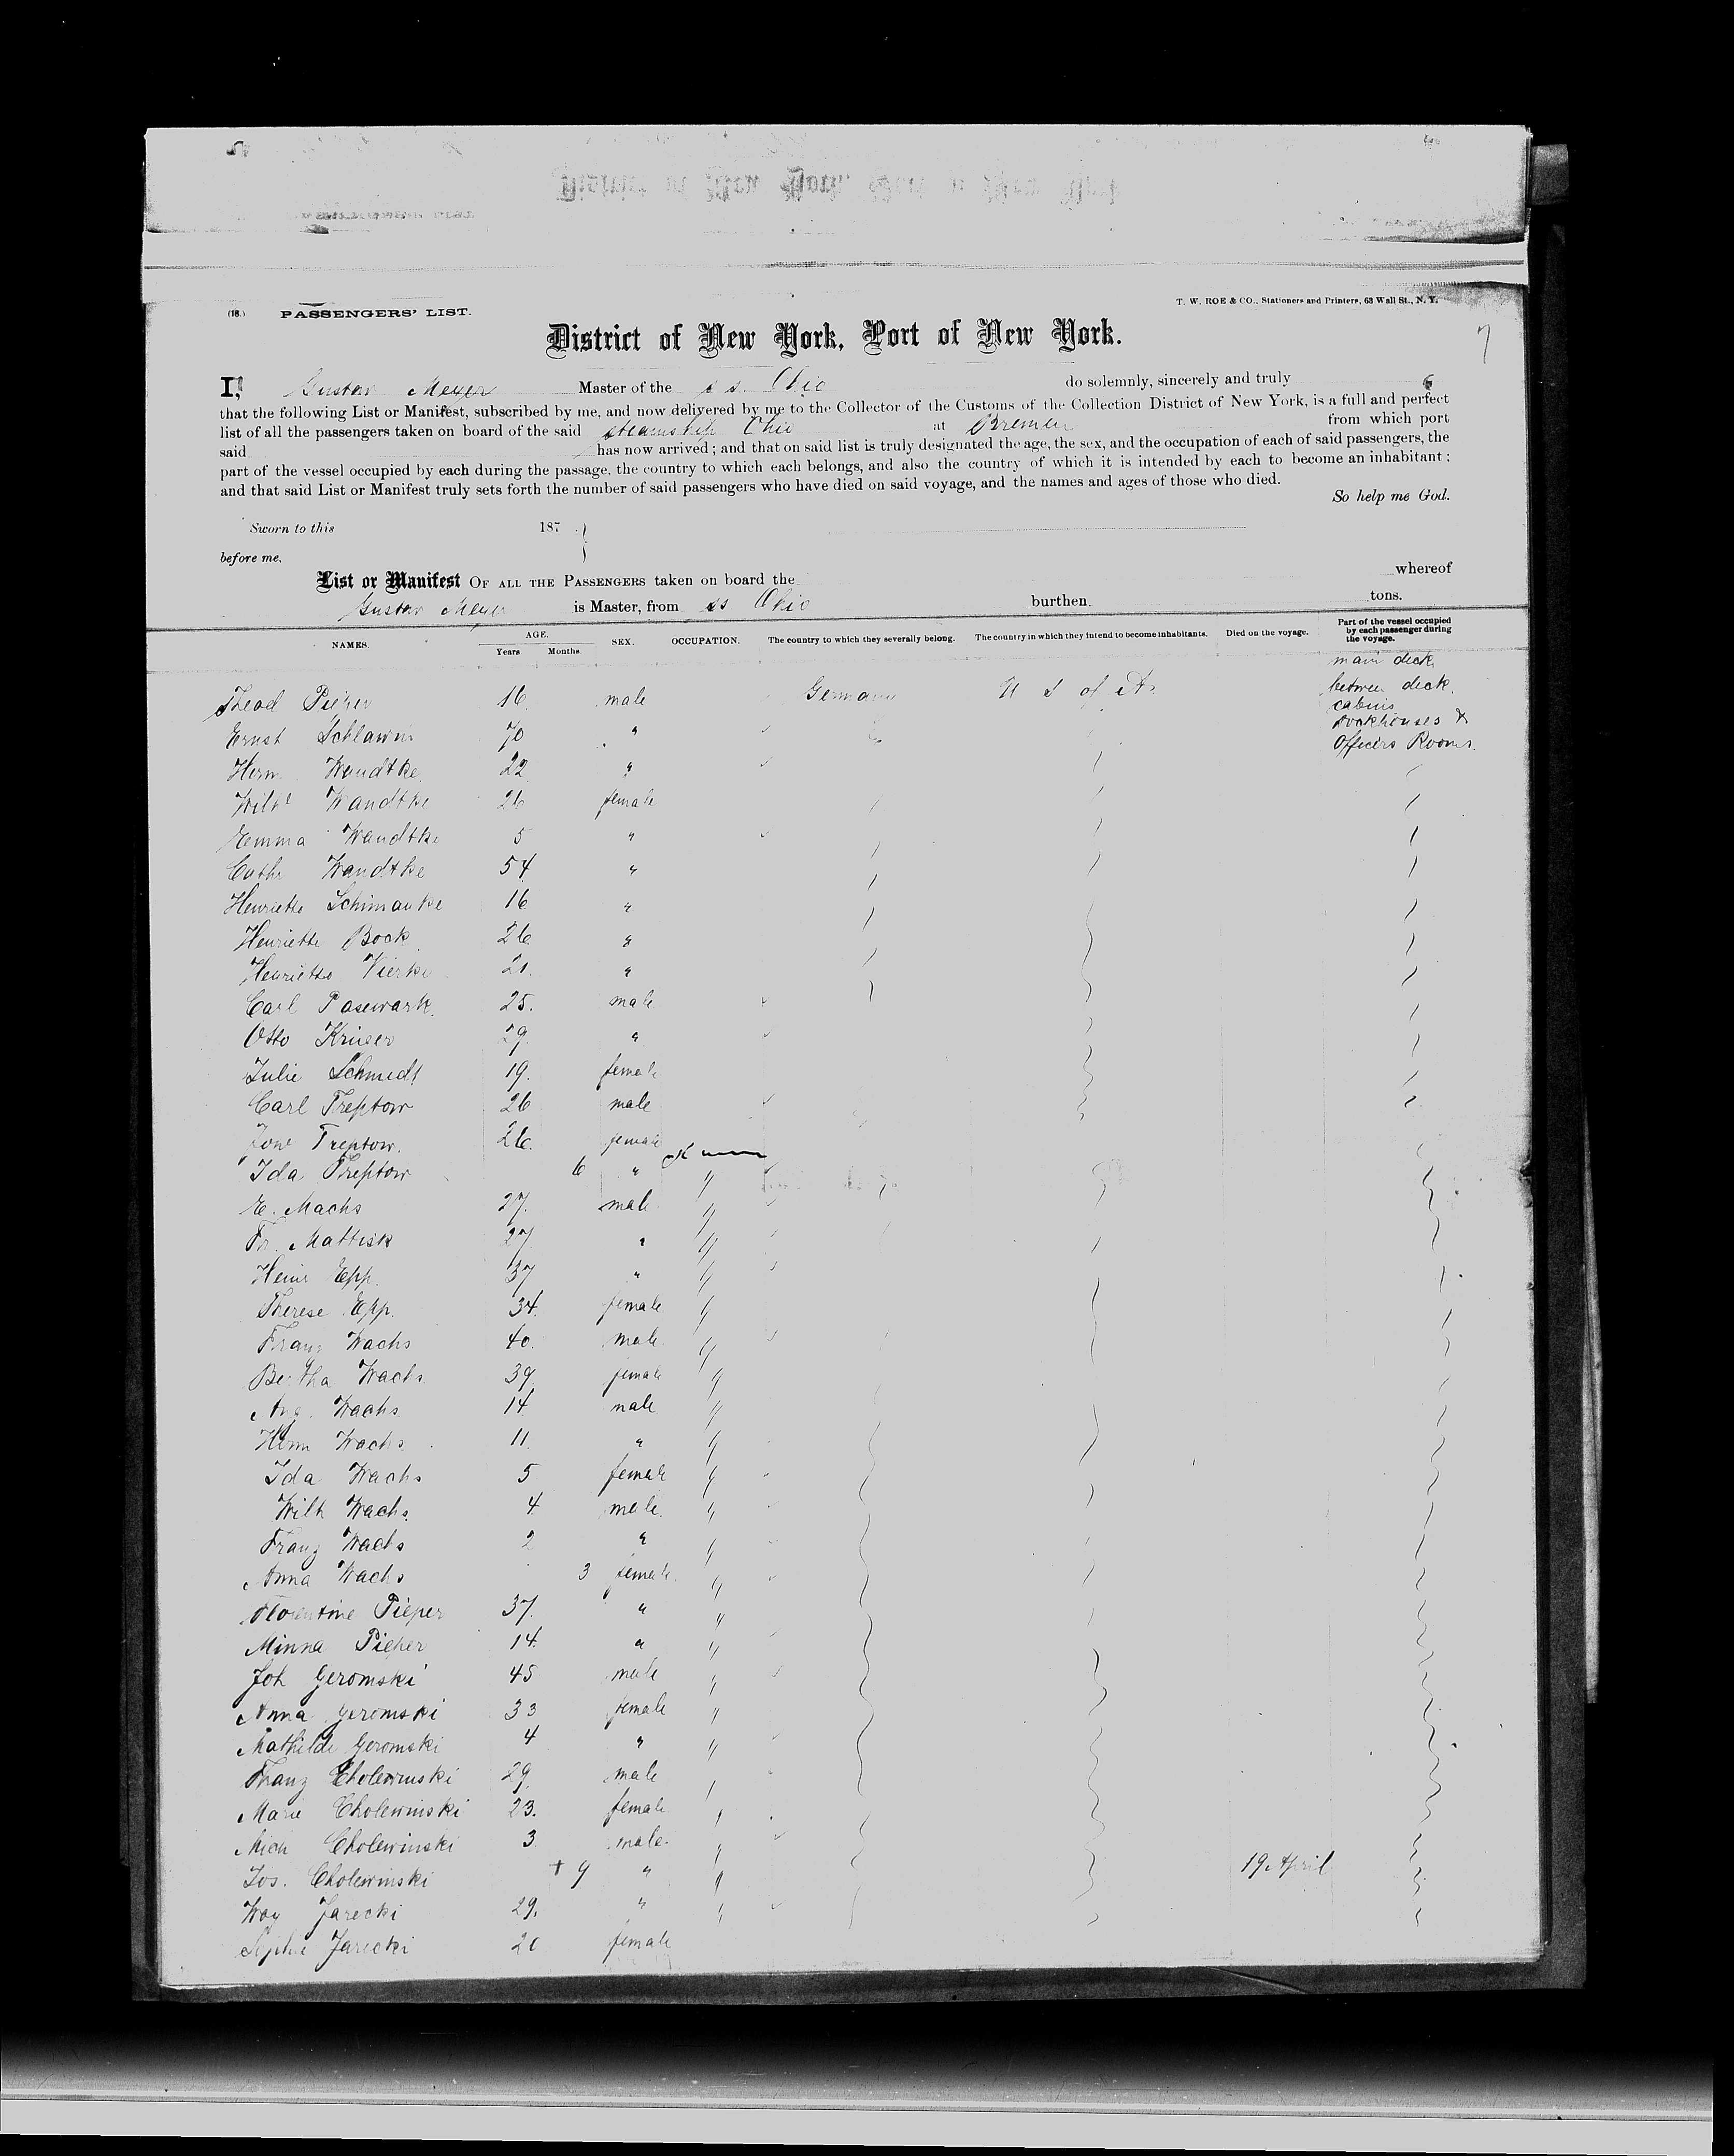 (18.) PASSENGERS' LIST.
T. W. ROE & CO., Stationers and Printers, 63 Wall St., N. Y.
District of New York, Port of New York.
7
I, Gustav Meyer Master of the ss. Ohio do solemnly, sincerely and truly
that the following List or Manifest, subscribed by me, and now delivered by me to the Collector of the Customs of the Collection District of New York, is a full and perfect
list of all the passengers taken on board of the said steamship Ohio at Bremen from which port
said has now arrived; and that on said list is truly designated the age, the sex, and the occupation of each of said passengers, the
part of the vessel occupied by each during the passage, the country to which each belongs, and also the country of which it is intended by each to become an inhabitant;
and that said List or Manifest truly sets forth the number of said passengers who have died on said voyage, and the names and ages of those who died.
So help me God.
Sworn to this 187
before me,
List or Manifest OF ALL THE PASSENGERS taken on board the whereof
Gustav Meyer is Master, from ss. Ohio burthen tons.
NAMES. AGE. Years Months. SEX. OCCUPATION. The country to which they severally belong. The country in which they intend to become inhabitants. Died on the voyage. Part of the vessel occupied by each passenger during the voyage.
main deck
between deck
cabins
Dockhouses &
Officers Rooms.
Theod Pieper 16 male Germany U S of A.
Ernst Schlawin 70 "
Herm Wandtke 22 "
Wilh Wandtke 26 female
Emma Wandtke 5 "
Cath Wandtke 54 "
Henriette Schimanke 16 "
Henriette Bock 26 "
Henriette Vierke 21. "
Carl Pasewark. 25. male
Otto Krüger 29. "
Julie Schmidt 19. female
Carl Treptow 26 male
Treptow. 26. female
Ida Treptow 6 " "
E. Machs 27. male "
Fr. Mattisk 27 " "
Heinr Epp. 37 " "
Therese Epp. 34. female "
Franz Wachs 40. male "
Bertha Wachs 39 female "
Aug. Wachs 14 male "
Herm Wachs 11. " "
Ida Wachs 5 female "
Wilh Wachs 4 male. "
Franz Wachs 2 " "
Anna Wachs 3 female "
Florentine Pieper 37. " "
Minna Pieper 14. " "
Joh Geromski 45 male "
Anna Geromski 33 female "
Mathilde Geromski 4 " "
Franz Cholewinski 29. male "
Marie Cholewinski 23. female "
Mich Cholewinski 3 male. "
Jos. Cholewinski + 9 " " 19 April
Woy Jarecki 29. " "
Sophie Jarecki 20 female